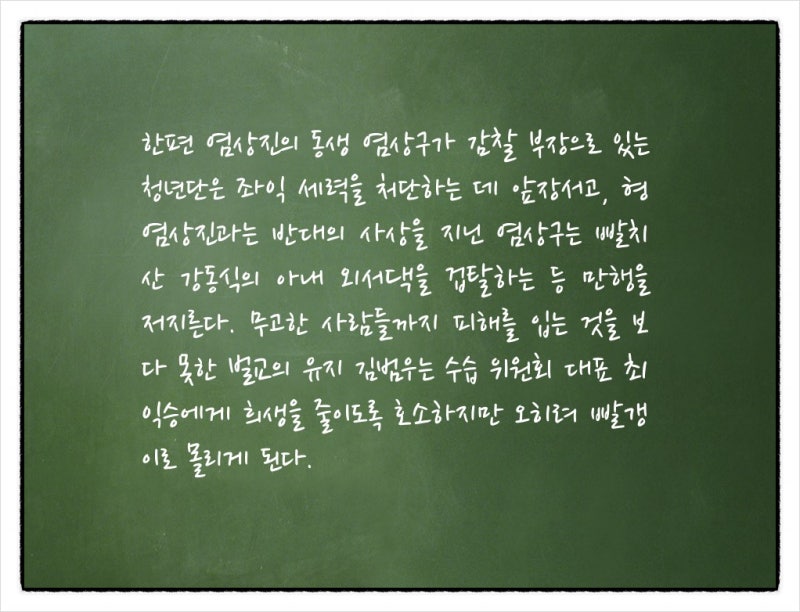 한편 염상진의 동생 염상구가 감찰 부장으로 있는
청년단은 좌익 세력을 처단하는 데 앞장서고, 형
염상진과는 반대의 사상을 지닌 염상구는 빨치
산 강동식의 아내 외서댁을 겁탈하는 등 만행을
저지른다. 무고한 사람들까지 피해를 입는 것을 보
다 못한 벌교의 유지 김범우는 수습 위원회 대표 최
익승에게 희생을 줄이도록 호소하지만 오히려 빨갱
이로 몰리게 된다.